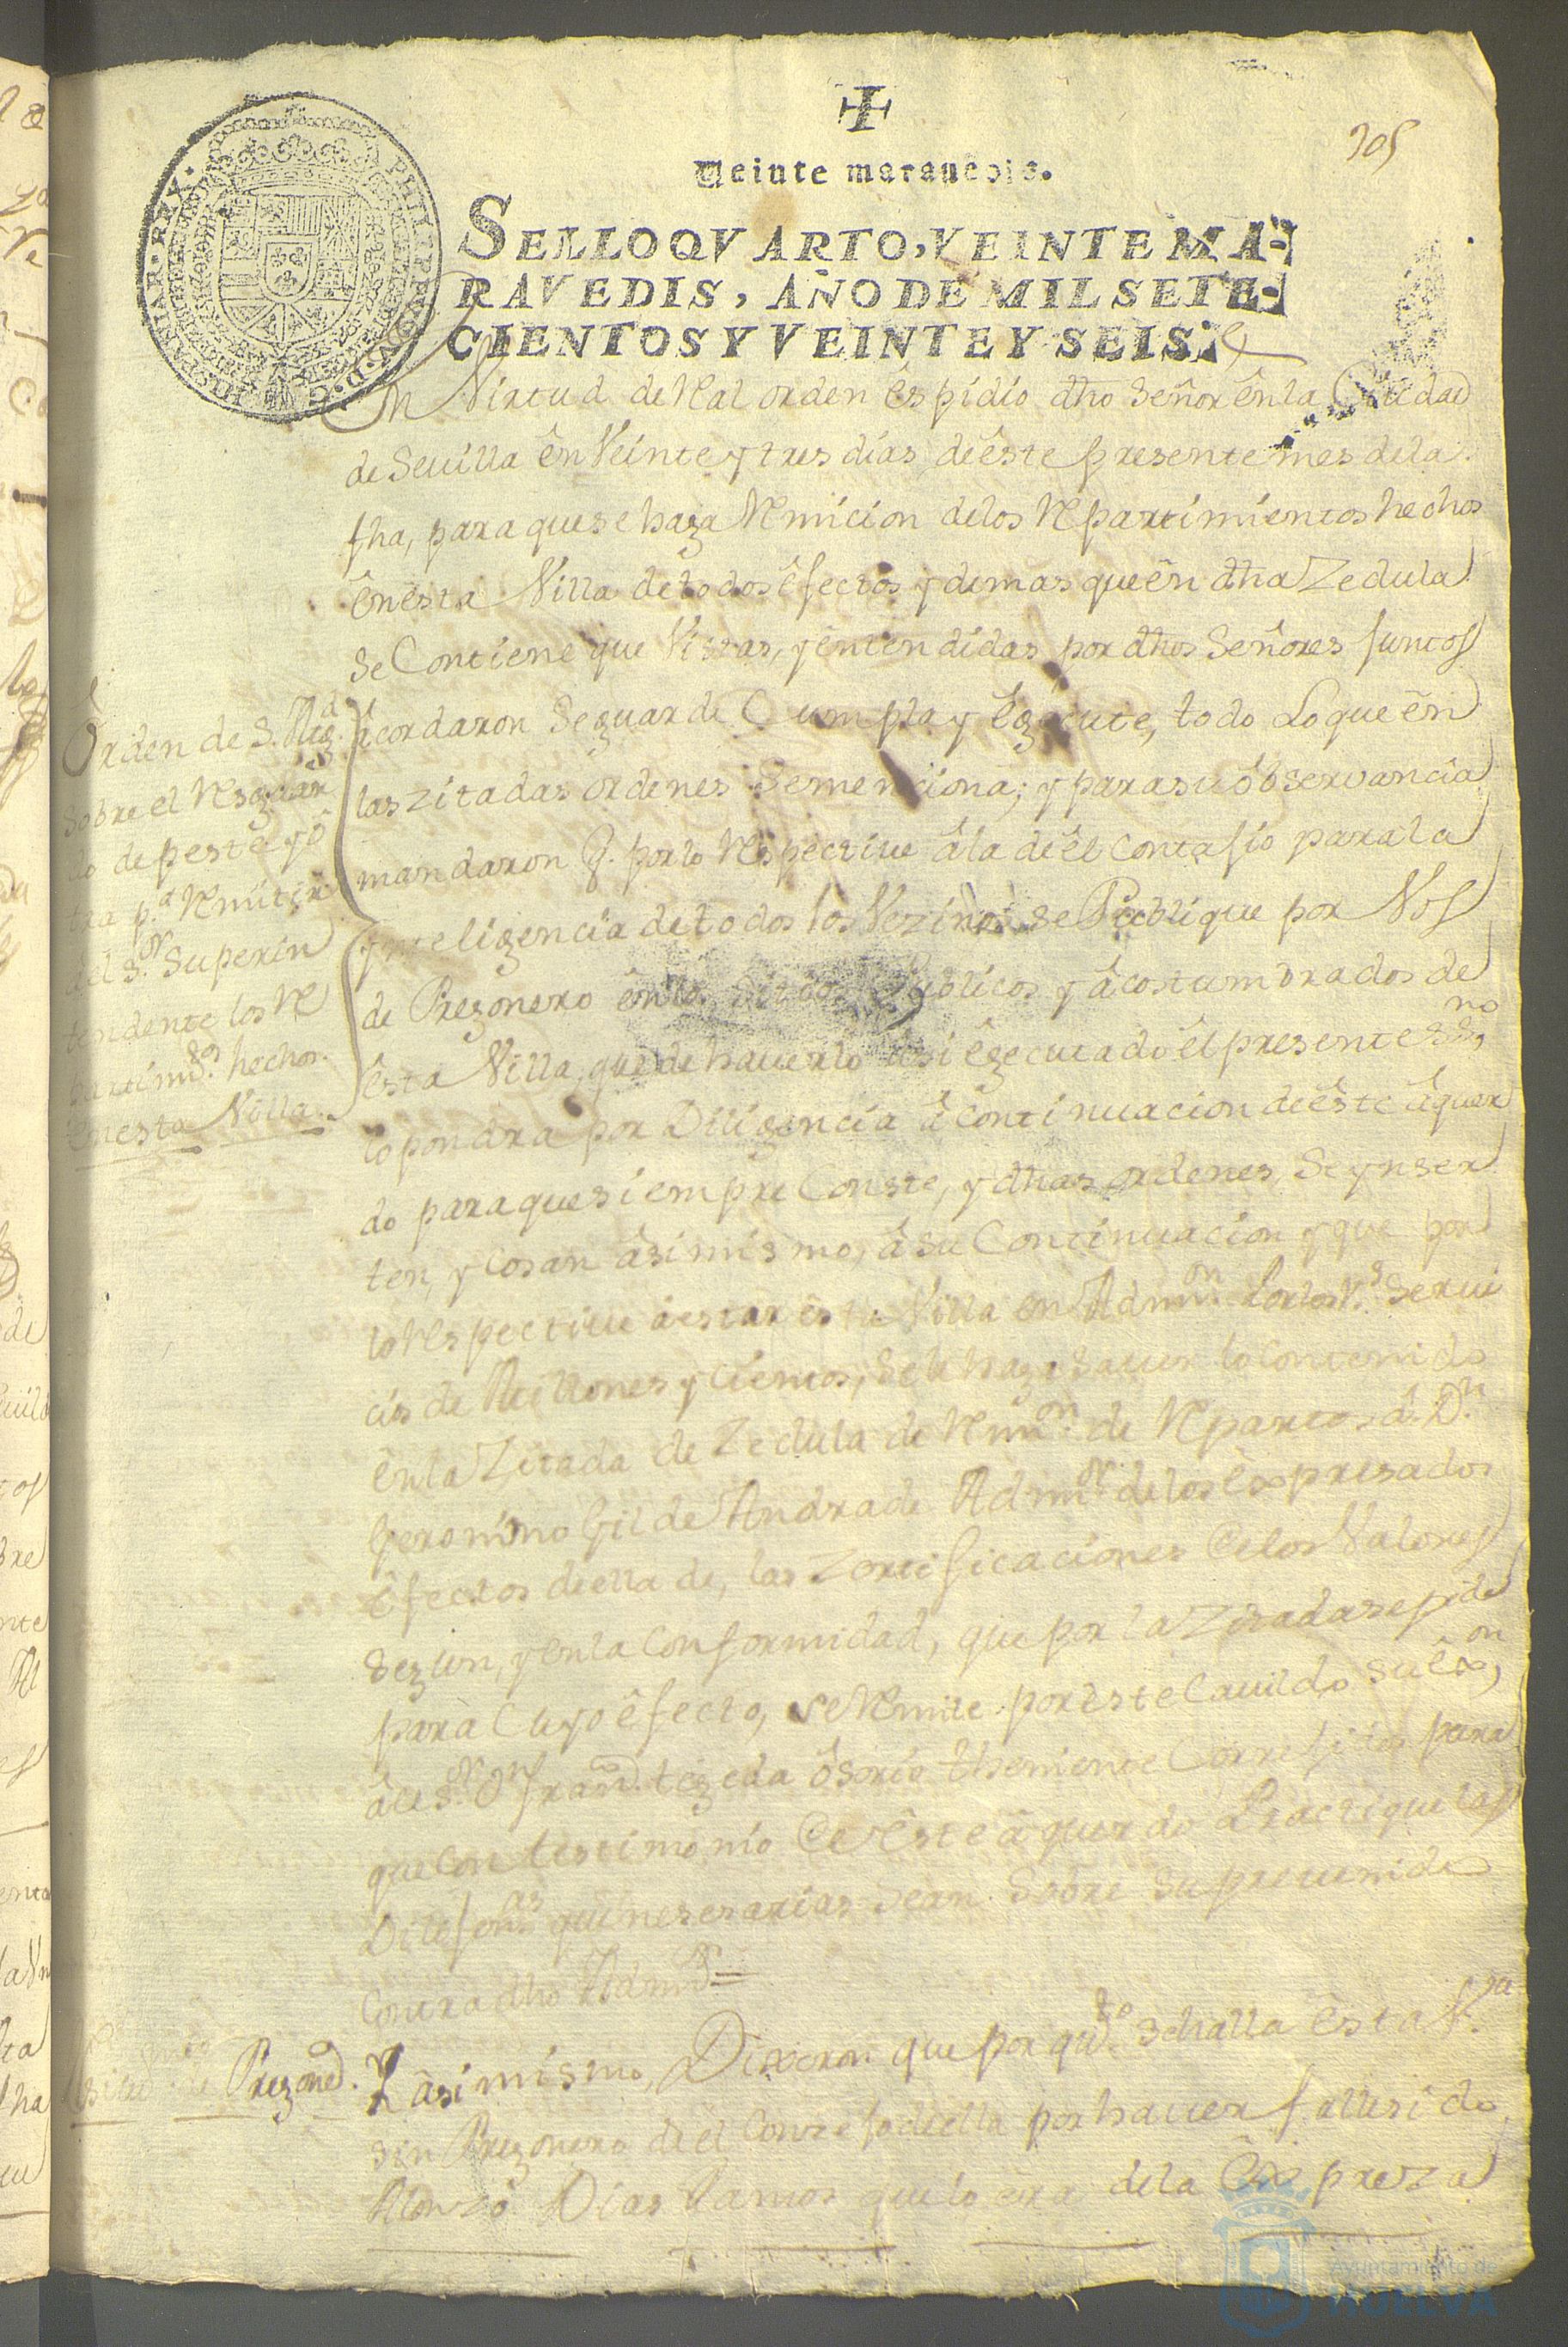 305
Veinte marauedis.
SELLO QVARTO, VEINTE MA-
RAVEDIS, AÑO DE MIL SETE-
CIENTOS Y VEINTE Y SEIS.
PHILIPPUS V D G HISPANIAR. REX.
En Virtud de Real orden êspidio dho Señor ên la Ciudad
de Seuilla ên Veinte y tres dias de êste presente mes de la
fha, para que se haga Remicion de los Repartimientos hechos
ên êsta Villa de todos êfectos y demas que ên dha Zedula
se Contiene que Vistas, y êntendidas por dhos Señores Juntos
Acordaron Se guarde Cumpla y êgecute, todo Lo que ên
las zitadas ordenes Se menciona; y para su ôbservancia
mandaron q. por lo Respectiue â la de êl Contajio para la
ynteligencia de todos los Vezinos se Publique por Vos
de Pregonero ên los Sitios Publicos y âcostumbrados de
êsta Villa, que de hauerlo âsi êgecutado êl presente ss.no,
lo pondra por Diligencia â Continuacion de êste âquer
do para que siempre Conste, y dhas ordenes, Se ynser
ten, y Cosan âsimismo, â su Continuacion y que por
lo Respectiue âestar êsta Villa en Admon. Por los Rs. Serui
cios de Millones y Cientos, Se le haga Sauer lo Contenido
ên la Zitada de Zedula de Remon. de Repartos â Dn.
Geronimo Gil de Andrade Admor. de los êxpresados
êfectos de ella de, las Zertificaciones de los Valores
Segun, y en la Conformidad, que por la Zitada se pide
para Cuyo êfecto, se Remite por êste Cauildo su êxon,
âl Sr. Dn Franco. tegeda ôsorio theniente Correjidor para
que Con testimonio de êste âquerdo Practique las
Dilejenas que nesesarias Sean Sobre Su preuenido
Contra dho Admor.
Y âsimismo, Dixeron que por qdo. se halla êsta Va
sin Pregonero de el Consejo de ella por hauer fallesido
Alonzo Dias Ramos que lo êra de la êxpreza
Orden de S. Magd.
sobre el Resguar
do de peste y ô
tra pa. Remitir
del Sor. Superin
tendente los Re
partimtos. hechos
ên esta Villa.
Pregono.
Ayuntamiento de
HUELVA